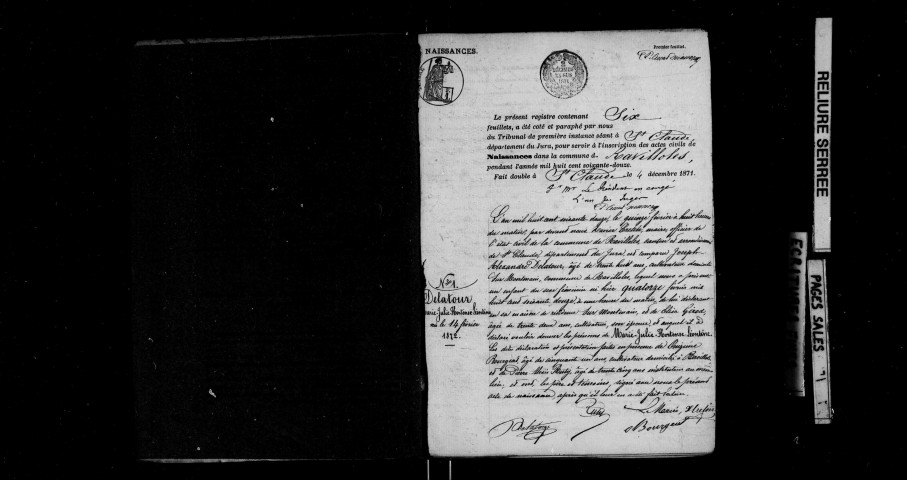 NAISSANCES.
Premier feuillet.
Le présent registre contenant Six
feuillets, a été coté et paraphé par nous
du Tribunal de première instance séant à St Claude,
département du Jura, pour servir à l'inscription des actes civils de
Naissances dans la commune d- Ravilloles,
pendant l'année mil huit cent soixante-douze.
Fait double à St Claude le 4 décembre 1871.
Pr Mr Le Président en congé
L'un des Juges
L'an mil huit cent soixante douze, le quinze février à huit heures
du matin, par devant nous Xavier maire, officier de
l'état civil de la commune de Ravilloles, canton et arrondissement
de St Claude, département du Jura, est comparu Joseph-
Alexandre Delatour, âgé de trente huit ans, cultivateur domicilié
Sur Montmain, commune de Ravilloles, lequel nous a présenté
un enfant du sexe féminin né hier quatorze février mil
huit cent soixante douze, à heures du matin, de lui déclarant
en sa maison de Sur Montmain, et de Gérod,
âgée de trente deux ans, cultivatrice, son épouse, et auquel il a
déclaré vouloir donner les prénoms de Marie-Julie-Hortense-Léontine.
Les dites déclaration et présentation faites en présence de
Bourgeat, âgé de cinquante un ans, cultivateur domicilié à Ravilloles,
et de Pierre âgé de trente cinq ans instituteur au même
lieu, et ont, les père et témoins, signé avec nous le présent
acte de naissance, après qu'il leur en a été fait lecture.
No 1.
Delatour
Marie-Julie-Hortense-Léontine
né le 14 février
1872.
Le Maire,
Delatour
Bourgeat
RELIURE SERREE
PAGES SALES